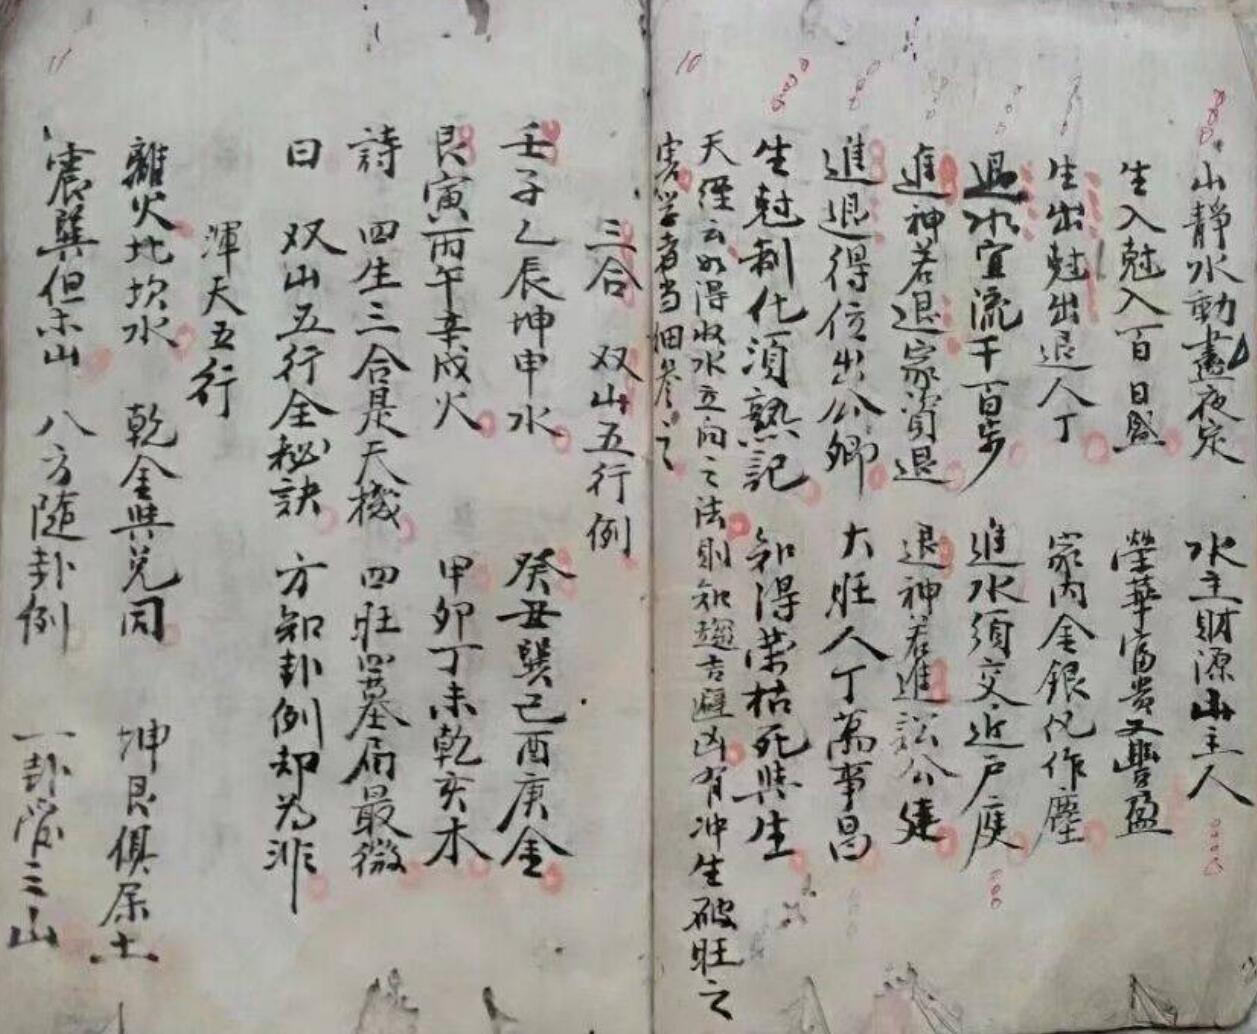 10
山静水動晝夜定 水主財源山主人
生入尅入百日盛 榮華富贵又豐盈
生出尅出退人丁 家内金銀化作塵
退水宜流千百步 進水須交近戸庭
進神若退家資退 退神若進 公
進退得位出公卿 大旺人丁萬事昌
生尅制化須熟記 知得荣枯死與生
天經云如得收水立向之法則知趋吉避凶有冲生破旺之
害学者当细參之
11
三合 双山五行例
壬子乙辰坤申水 癸丑巽巳酉庚金
艮寅丙午辛戌火 甲卯丁未乾亥木
詩 四生三合是天機 四旺四墓局最微
曰 双山五行全秘訣 方知卦例却为非
渾天五行
離火北坎水 乾金與兑同 坤艮俱属土
震巽但木山 八方随卦例 一卦管三山